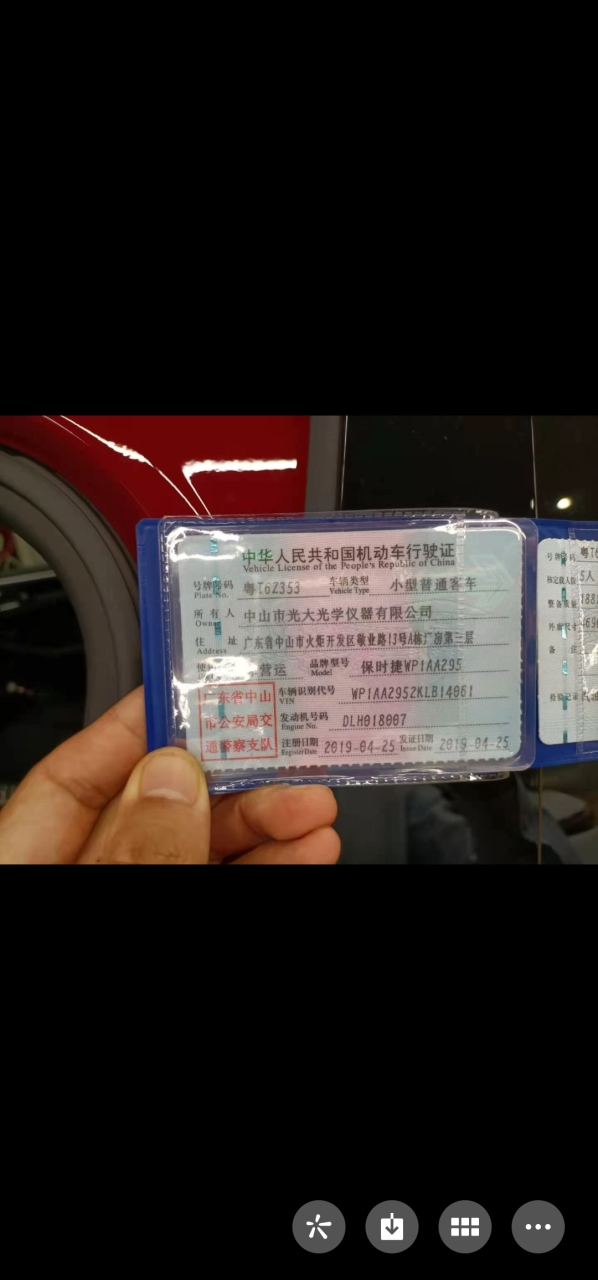 中华人民共和国机动车行驶证
Vehicle License of the People's Republic of China
号牌号码 粤T6Z353 车辆类型 小型普通客车
Plate No. Vehicle Type
所有人 中山市光大光学仪器有限公司
Owner
住址 广东省中山市火炬开发区敬业路13号A栋厂房第三层
Address
营运 品牌型号 保时捷WP1AA295
Model
广东省中山
市公安局交
通警察支队
车辆识别代号 WP1AA2952KLB14061
VIN
发动机号码 DLH018007
Engine No.
注册日期 2019-04-25 发证日期 2019-04-25
Register Date Issue Date
号牌号码 粤T6
核定载人数 5人
整备质量
外廓尺寸
备注
检验记录